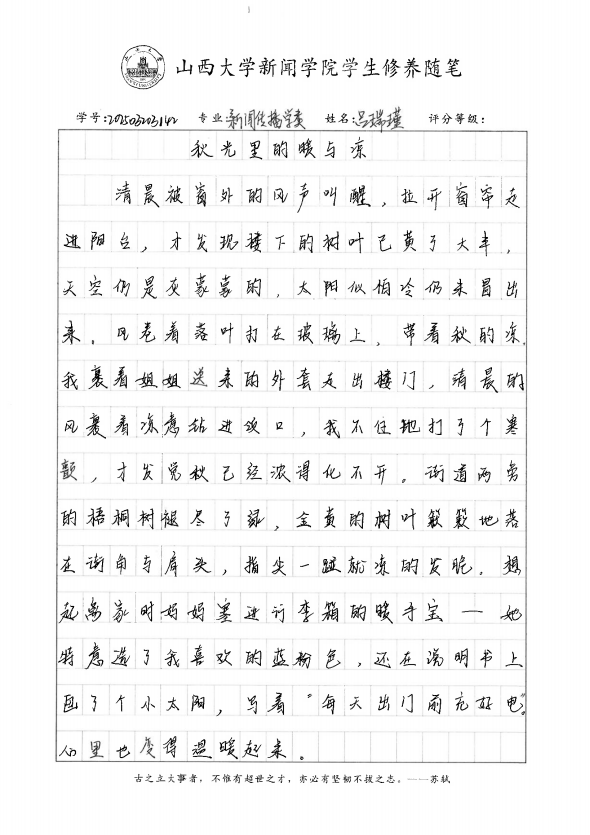 山西大学新闻学院学生修养随笔
学号:202503203142 专业:新闻传播学类 姓名:吕瑞瑾 评分等级:
秋光里的暖与凉
清晨被窗外的风声叫醒，拉开窗帘走
进阳台，才发现楼下的树叶已黄了大半，
天空仍是灰蒙蒙的，太阳似怕冷仍未冒出
来。风卷着落叶打在玻璃上，带着秋的凉。
我裹着姐姐送来的外套走出楼门，清晨的
风裹着凉意钻进领口，我不住地打了个寒
颤，才发觉秋已经浓得化不开。街道两旁
的梧桐树褪尽了绿，金黄的树叶簌簌地落
在街角与肩头，指尖一碰就凉的发脆。想
起离家时妈妈塞进行李箱的暖手宝——她
特意选了我喜欢的蓝粉色，还在说明书上
画了个小太阳，写着“每天出门前充好电”。
心里也变得温暖起来。
古之立大事者，不惟有超世之才，亦必有坚韧不拔之志。——苏轼